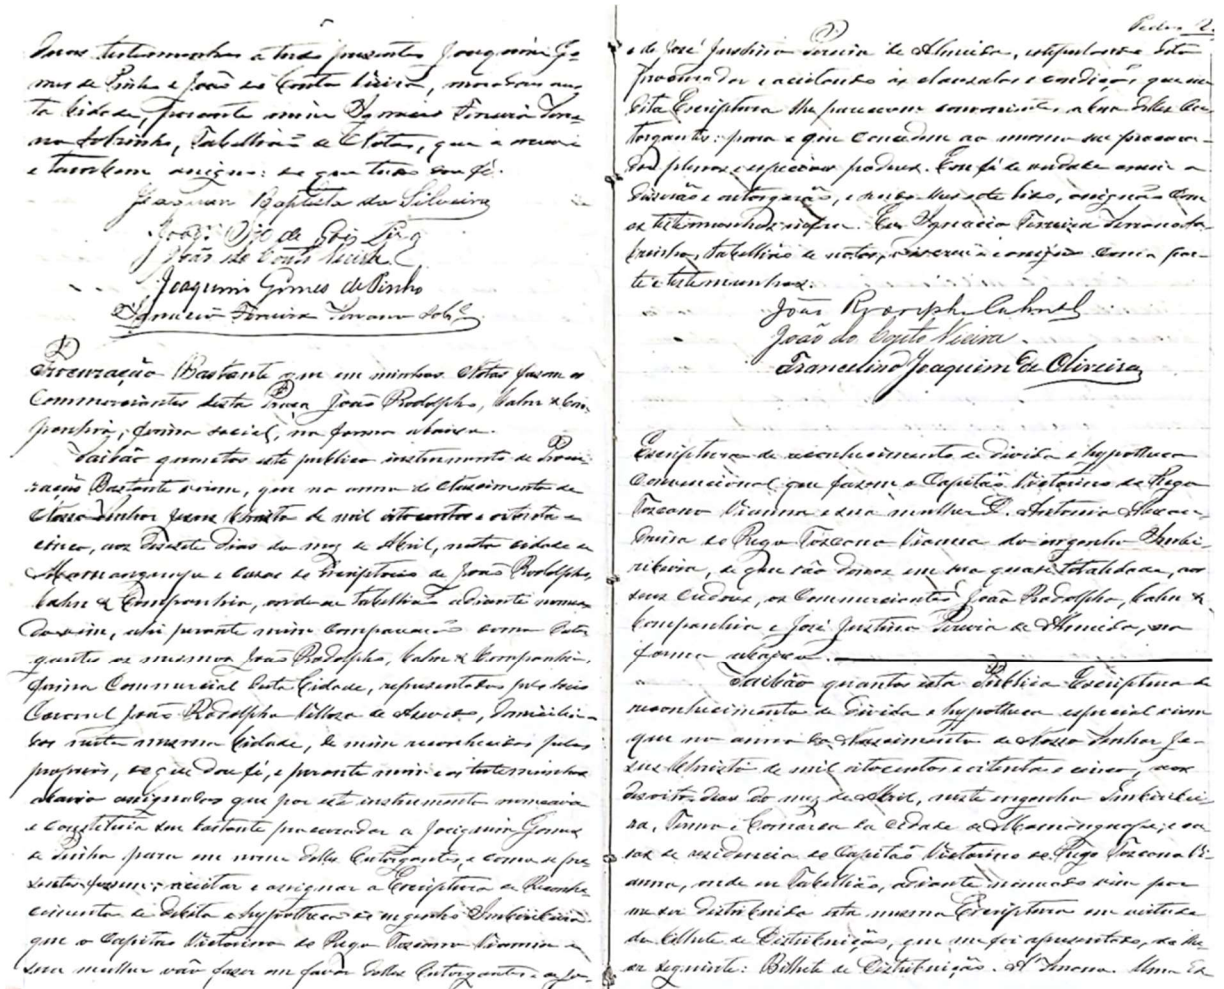 duas testemunhas a tudo presentes Joaquim Go-
mes de Pinho e João do Couto Vieira, moradores nes-
ta Cidade, perante mim Ignacio Ferreira Serra-
no Sobrinho, Tabellião de Notas, que a escrevi
e tambem assigno: de que tudo dou fé.
Joaquim Baptista da Silveira
João do Couto Vieira
Joaquim Gomes de Pinho
Ignacio Ferreira Serrano Sobrº
Procuração Bastante que em minhas Notas fazem os
Commerciantes desta Praça João Rodolpho, Cahn & Com-
panhia, firma social, na forma abaixo.
Saibão quantos este publico instrumento de Procu-
ração Bastante virem, que no anno do Nascimento de
Nosso Senhor Jesus Christo de mil oito centos e oitenta e
cinco, aos dias do mez de Abril, nesta cidade de
Mamanguape e casas do Escriptorio de João Rodolpho,
Cahn & Companhia, onde eu Tabellião adiante nomea-
do vim, ahi perante mim comparecerão como Outor-
gantes os mesmos João Rodolpho, Cahn & Companhia,
firma Commercial desta Cidade, representados pelo socio
Coronel João Rodolpho de Azevedo, domicilia-
dos nesta mesma Cidade, de mim reconhecidos pelos
proprios, de que dou fé, e perante mim e as testemunhas
abaixo assignadas que por este instrumento nomeava
e constituia seu bastante procurador a Joaquim Gomes
de Pinho para em nome delles Outorgantes, e como se pre-
sentes fossem, aceitar e assignar a Escriptura de Reconhe-
cimento de debito e hypotheca do engenho Imbiribeira
que o Capitão Victorino do Rego Toscano Vianna e
sua mulher vão fazer em favor delles Outorgantes e
Pedro 2.
e de José Justino Pereira de Almeida, estipulando dito
Procurador e aceitando as clausulas e condições que na
dita Escriptura lhe parecerem convenientes a bem delles Ou-
torgantes: para o que concedem ao mesmo seu procura-
dor plenos e especiaes poderes. Dou fé de verdade
e outorgarão, e sendo lhes este lido, assignão com
as testemunhas Eu Ignacio Ferreira Serrano So-
brinho, Tabellião de notas, o escrevi e assigno
testemunhas.
João Rodolpho Cahn &
João do Couto Vieira
Francelino Joaquim de Oliveira
Escriptura de reconhecimento de divida e hypotheca
Convencional que fazem o Capitão Victorino do Rego
Toscano Vianna e sua mulher D. Antonia Alexan-
drina do Rego Toscano Vianna do engenho Imbi-
ribeira, de que são donos em sua quasi totalidade, aos
seus credores, os Commerciantes João Rodolpho, Cahn &
Companhia e José Justino Pereira de Almeida, na
forma abaixo.
Saibão quantos esta Publica Escriptura de
reconhecimento de divida e hypotheca especial virem
que no anno do Nascimento de Nosso Senhor Je-
sus Christo de mil oitocentos e oitenta e cinco, aos
dezoito dias do mez de Abril, neste engenho Imbiribei-
ra, Termo e Comarca da cidade de Mamanguape, e ca-
sas de residencia do Capitão Victorino do Rego Toscano Vi-
anna, onde eu Tabellião, adiante nomeado vim por
me ser distribuida esta mesma Escriptura em virtude
do bilhete de Distribuição, que me foi apresentado, do the-
or seguinte: Bilhete de Distribuição. Uma Es-